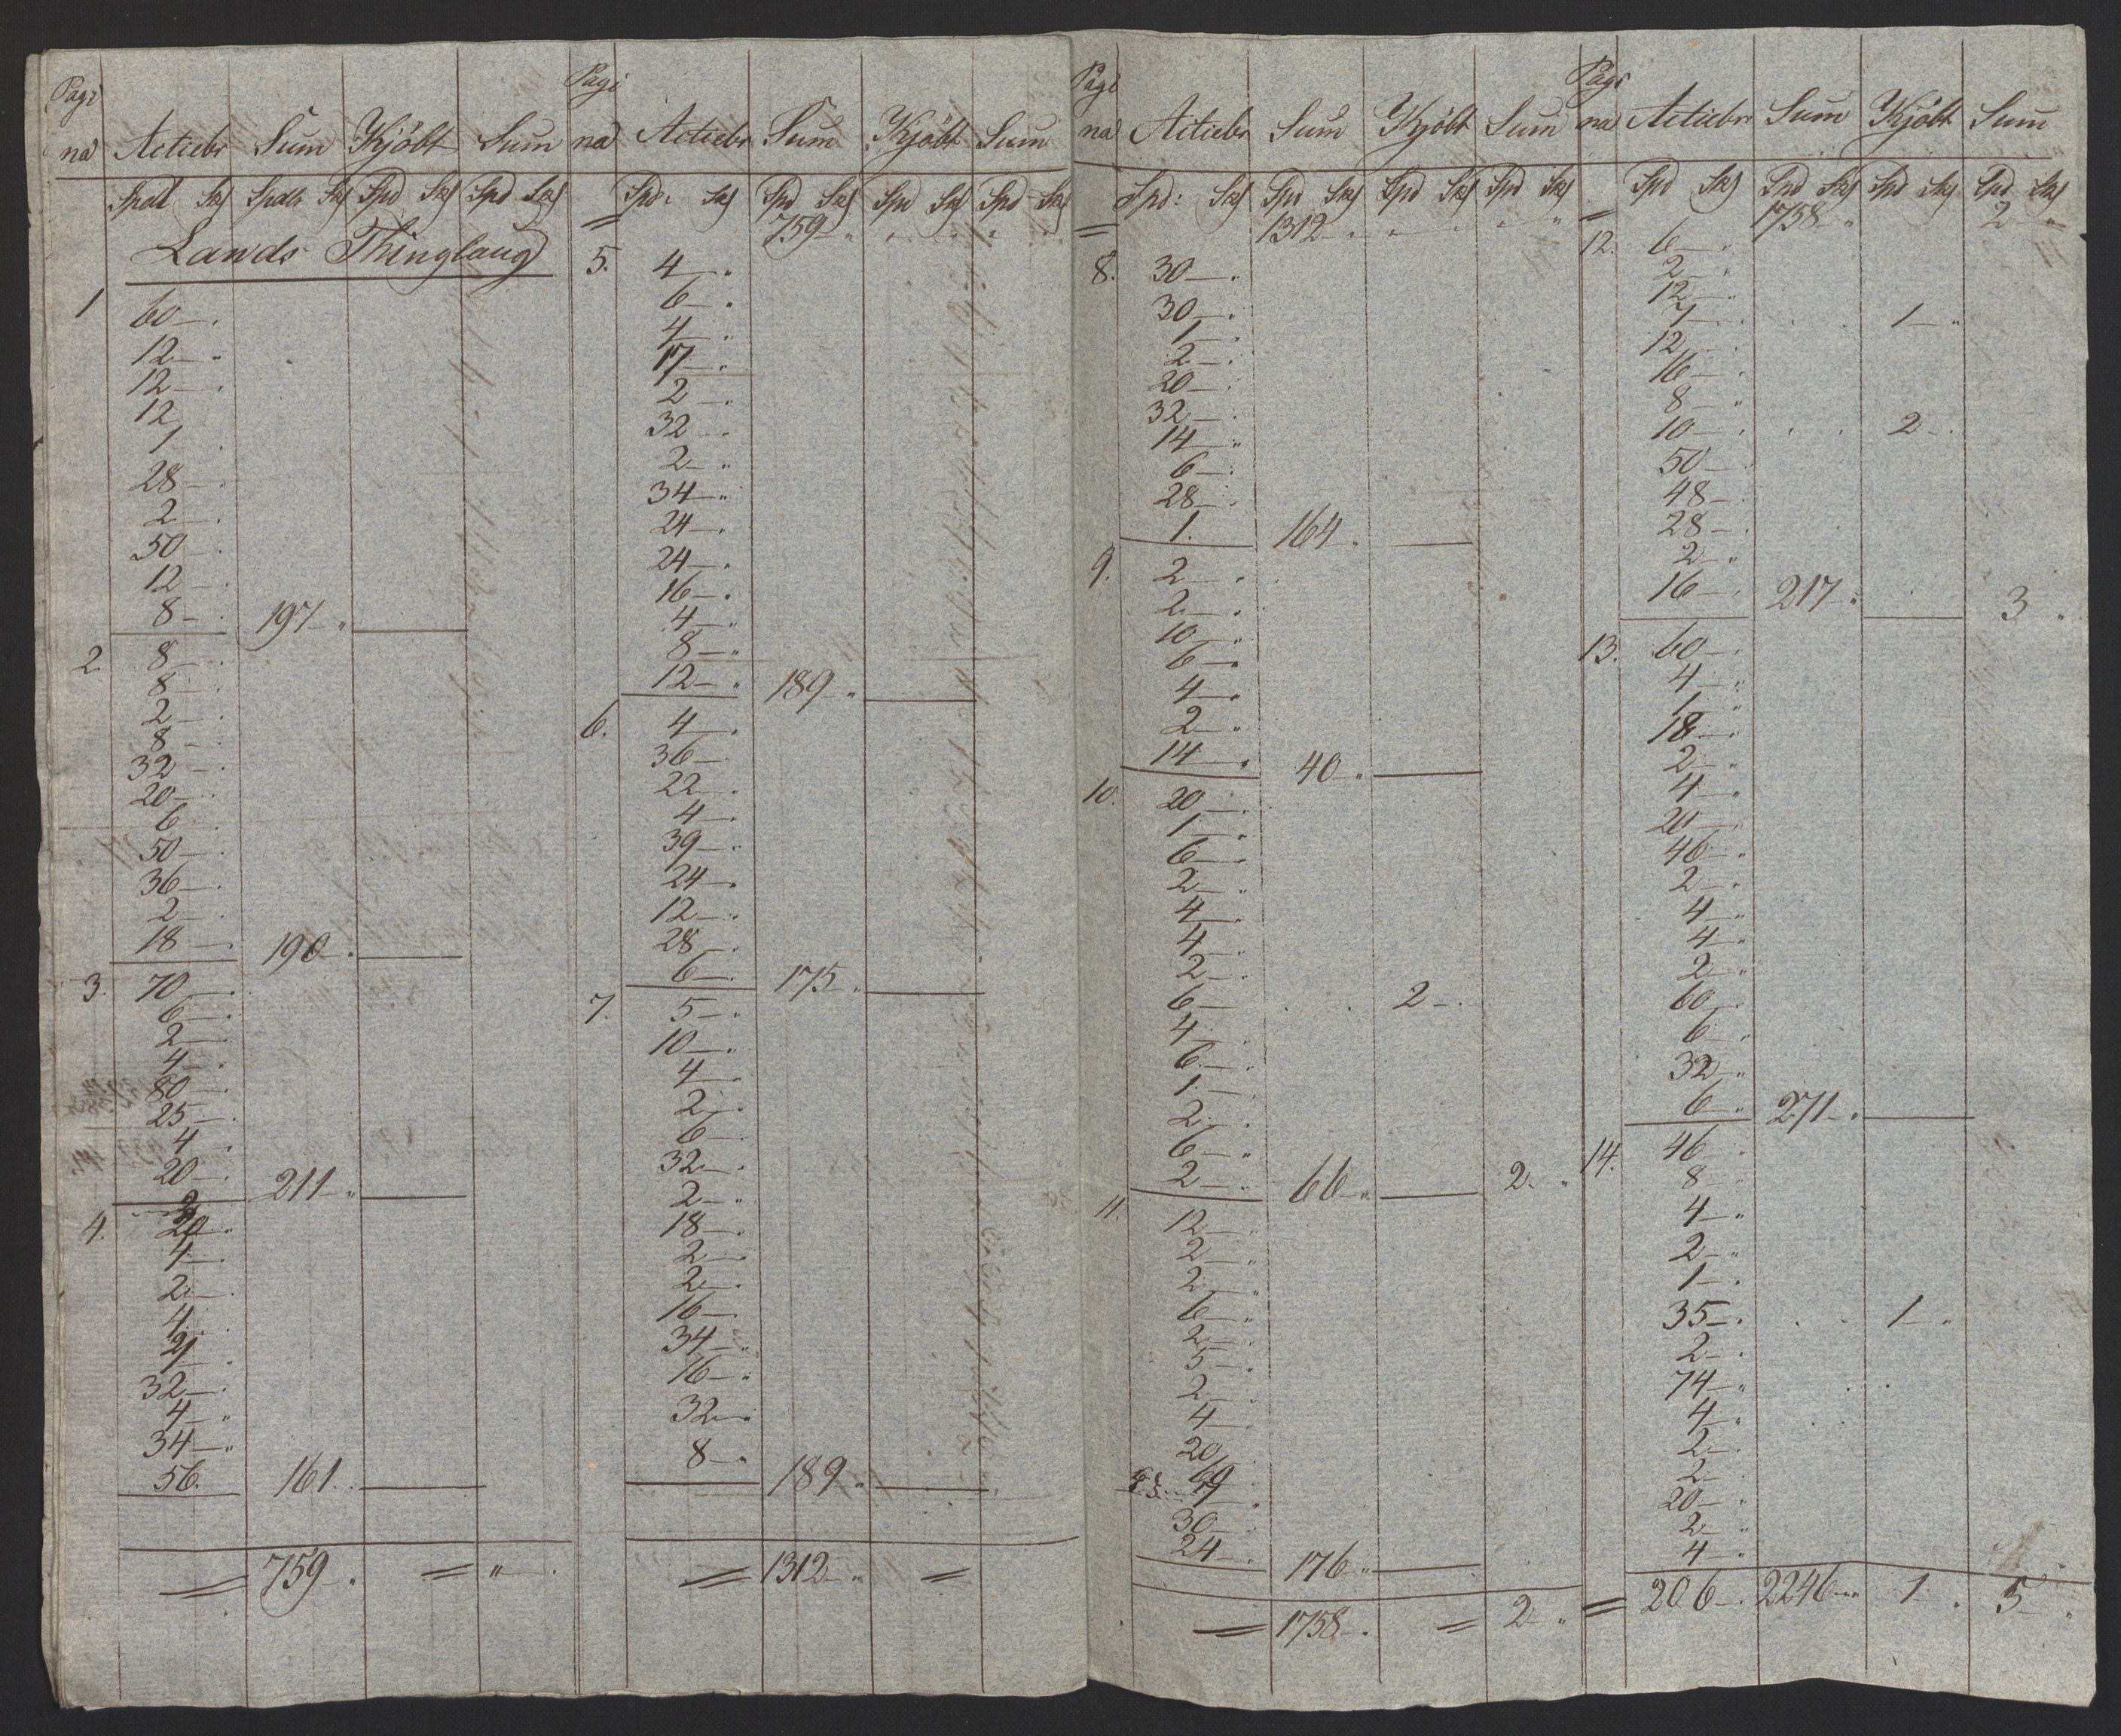 Pagi
na Actiebr Sum Kjöbt Sum
Spdl Sk Spdlr Sk Spd Sk Spd Sk
Lands Thinglaug
1 60 — "
12 — "
12 — "
12
1
28 — "
2 — "
50 — "
12 — "
8 — " 197 — "
2. 8 — "
8 — "
2 — "
8 — "
32 — "
20 — "
6
50 — "
36 — "
2 — "
18 — " 190 — "
3. 70 — "
6 — "
2 — "
4 — "
80 — "
25 — "
4 — "
20 — " 211 — "
4.
4 — "
2 — "
4 — "
32 — "
4 — "
34 — "
56. 161 "
= 759 — " = "
Pagi
na Actiebr Sum Kjöbt Sum
Spd: Sk Spd Sk Spd Sk Spd Sk
= 759 — "
5. 4 — "
6 — "
4 — "
17 — "
2 — "
32 — "
2 — "
34 — "
24 — "
24 — "
16 — "
4 — "
8 — "
12 — " 189 "
6. 4 — "
36 — "
22 — "
4 — "
39 — "
24 — "
12 — "
28 — "
6 — " 175 "
7. 5 — "
10 — "
4 — "
2 — "
6 — "
32 — "
2 — "
18 — "
2 — "
2 — "
16 — "
34 — "
16 — "
32 — "
8 — " 189 "
= 1312 — " =
Pagi
na Actiebr Sum Kjöbt Sum
Spd: Sk Spd Sk Spd Sk Spd Sk
= 1312 — "
8. 30 — "
30 — "
1 — "
2 — "
20 — "
32 — "
14 — "
6 — "
28 — "
1. 164 "
9. 2 — "
2 — "
10 — "
6 — "
4 — "
2 — "
14 — " 40 — "
10. 20 — "
1 — "
6 — "
2 — "
4 — "
4 — "
2 — "
6 — " 2 — "
4 — "
6 — "
1 — "
2 — "
6 — "
2 — " 66 — " 2 "
11. 12 — "
2 — "
2 — "
6 — "
2 — "
5 — "
2 — "
4 — "
20
30 — "
24 — " 176 "
= 1758 — " = 2 "
Pagi
na Actiebr Sum Kjöbt Sum
Spd Sk Spd Sk Spd Sk Spd Sk
= 1758 — " 2 "
12. 6 — "
2 — "
12 — "
7 — " 1 — "
12 — "
16 — "
8 — "
10 — " 2 — "
50 — "
48 — "
28 — "
2 — "
16 — " 217 — " 3 "
13. 60 — "
4 — "
1 "
18 — "
2 — "
4 — "
20 — "
46 — "
2 — "
4 — "
4 — "
2 — "
60 — "
6 — "
32 — "
6 — " 271 — "
14. 46 — "
8 — "
4 — "
2 — "
1 — "
35 — " 1 "
2 — "
74 — "
4 — "
2 — "
2 — "
20 — "
2 — "
4 — "
= 206 — " 2246 — " 1 " 5 "